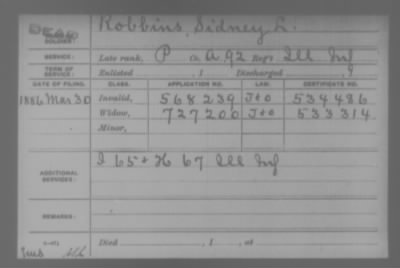 Dead Robbins, Sidney L.
SOLDIER:
SERVICE: Late rank, P Co. A, 92 Reg't Ill Inf
TERM OF SERVICE: Enlisted , 1 Discharged , 1
DATE OF FILING. CLASS. APPLICATION NO. LAW. CERTIFICATE NO.
1886 Mar 30 Invalid, 568239 534486
Widow, 727200 533314
Minor,
ADDITIONAL SERVICES: I 65 + H 67 Ill Inf
REMARKS:
Died , 1 , at